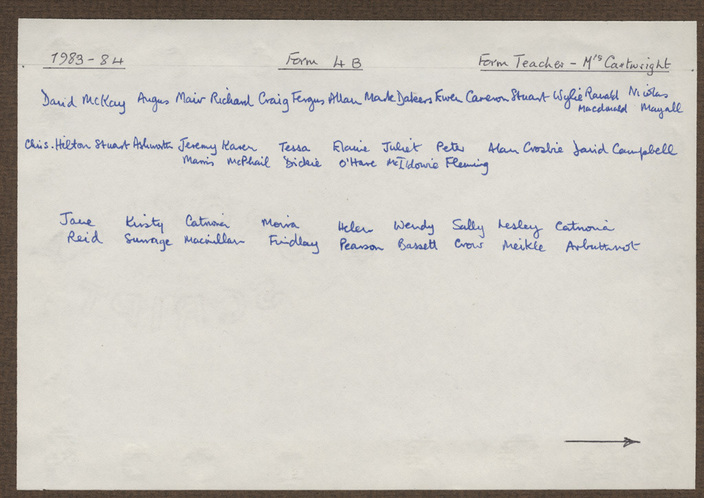 1983-84 Form 4B Form Teacher - Mrs Cartwright
David McKay Angus Mair Richard Craig Fergus Allan Mark Dakers Ewen Cameron Stuart Wylie Ranald Nicolas
Macdonald Mayall
Chris. Hilton Stuart Ashworth Jeremy Karen Tessa Elaine Juliet Peter Alan Crosbie David Campbell
Morris McPhail Dickie O'Hare McIldowie Fleming
Jane Kirsty Catriona Moira Helen Wendy Sally Lesley Catriona
Reid Macmillan Findlay Pearson Bassett Crow Meikle Arbuthnot